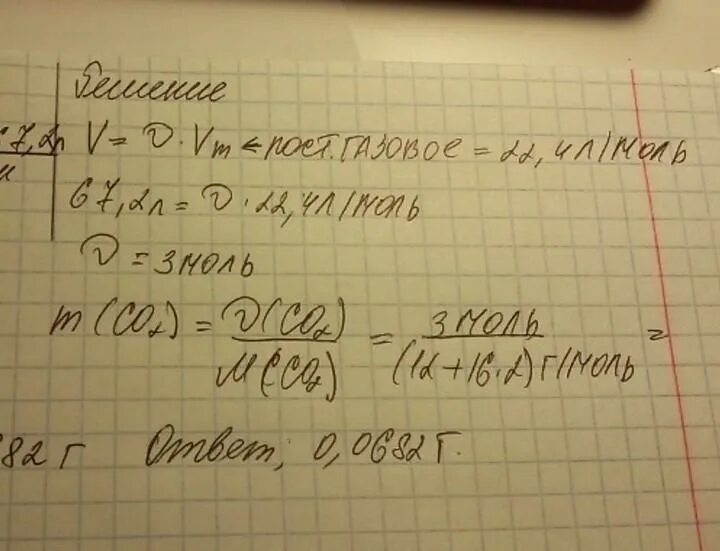 Решение
67,2л V = ν · Vm ← пост. газовое = 22,4л/моль
67,2л = ν · 22,4л/моль
ν = 3моль
m (CO2) = ν(CO2) / M(CO2) = 3моль / (12+16·2)г/моль =
682 г Ответ; 0,0682 г.